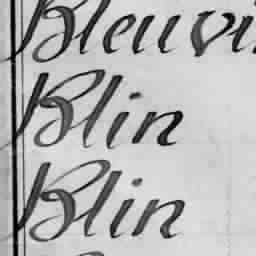 Bleuvi
Blin
Blin